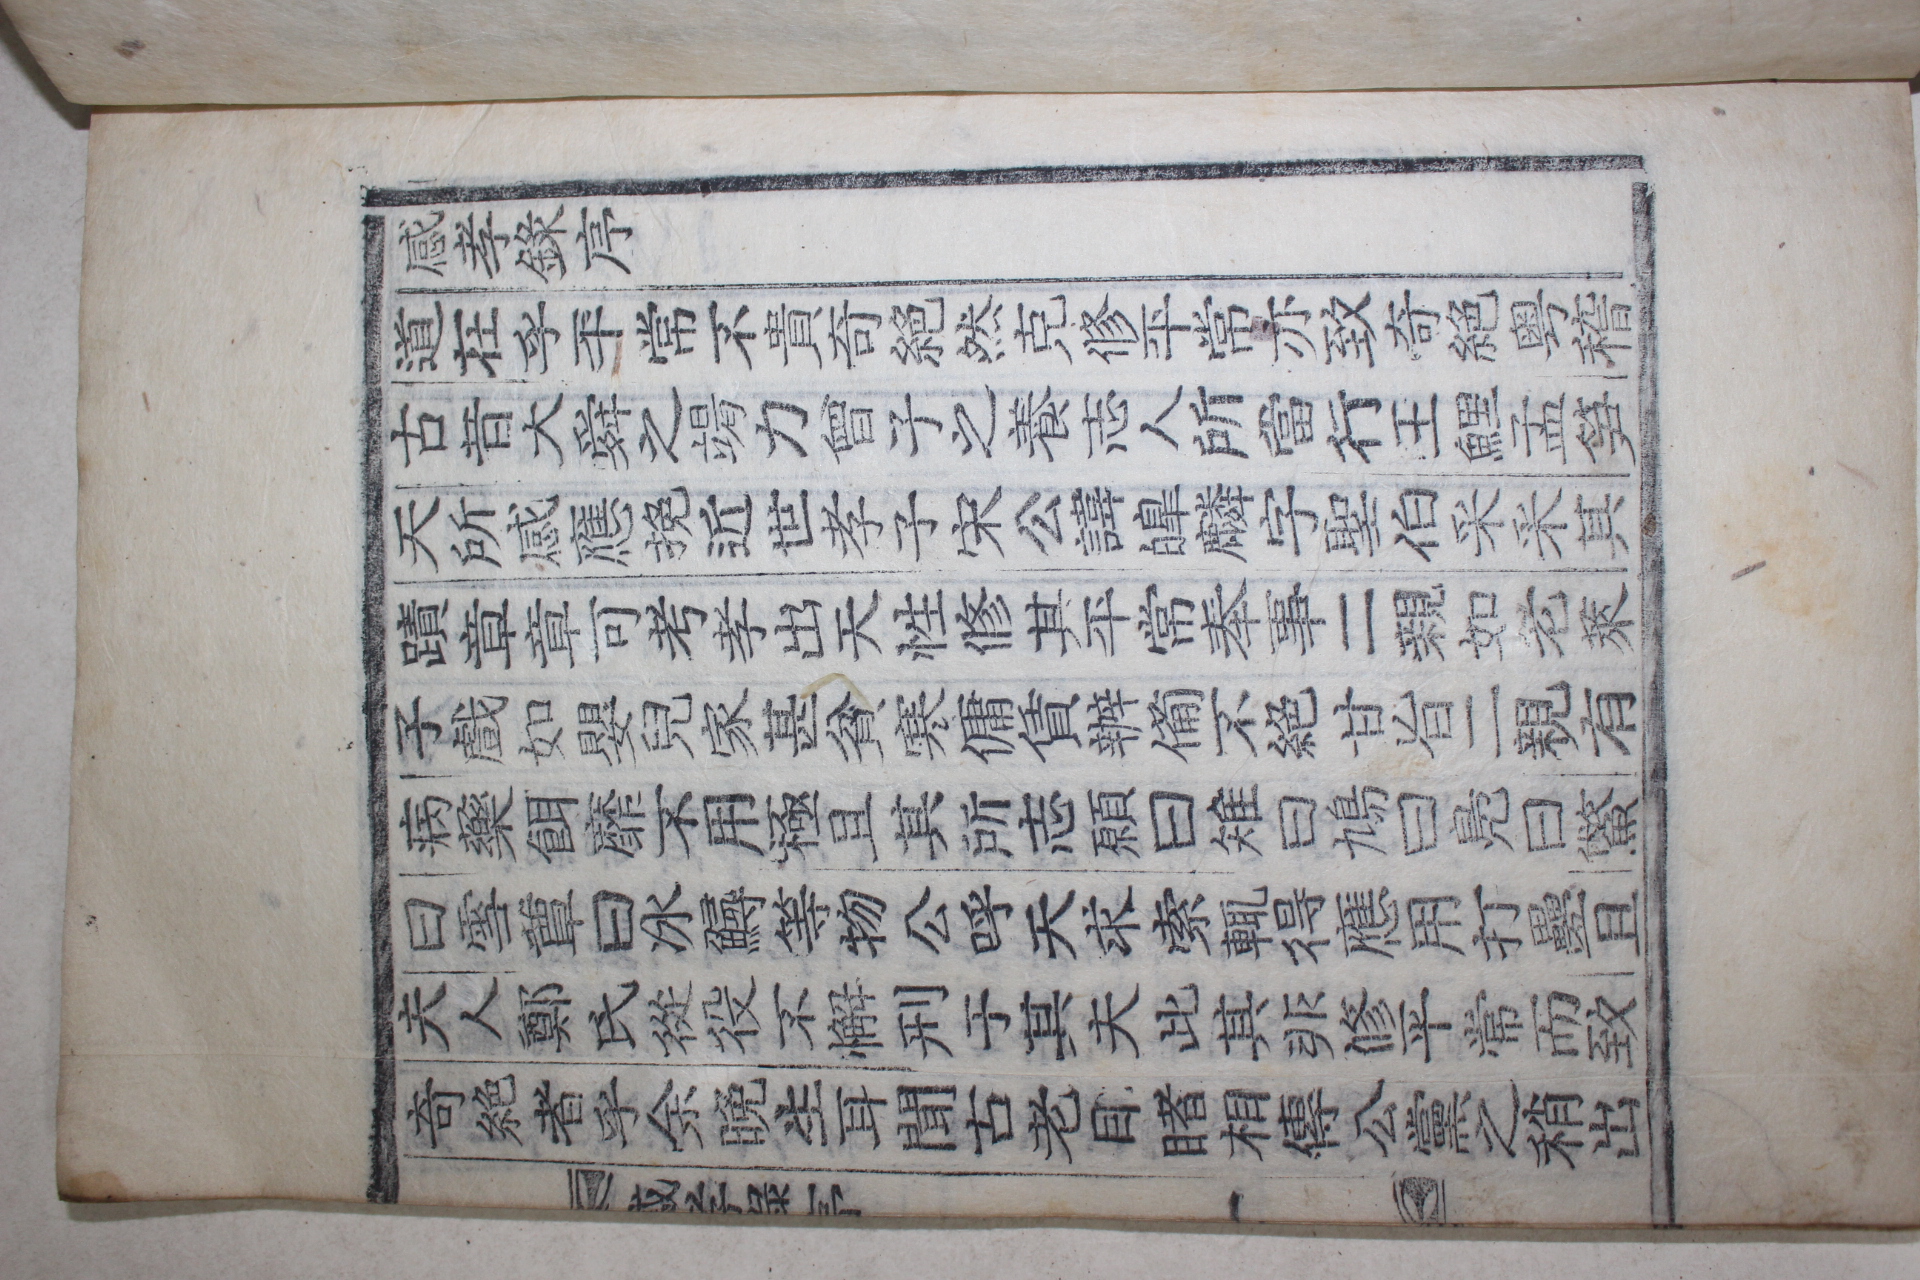 感孝錄序
道在乎平常不貴奇絕然克修平常亦致奇絕粤稽
古昔大舜之竭力曾子之養志人所當行王鯉孟笋
天所感應挽近世孝子宋公諱皥麟字聖伯采采其
蹟章章可考孝出天性修其平常奉事二親如老萊
子戲如嬰兒家甚貧寒傭賃辦備不絕甘旨二親有
病藥餌靡不用極且其所志願曰雉曰鳩曰鳧曰鱉
曰雪蕈曰冰鱘等物公呼天求索輒得應用打疊且
夫人鄭氏從役不懈刑于其夫此其非修平常而致
奇絕者乎余晚生耳聞古老目睹相傳公黨之稍出
感孝錄序
一